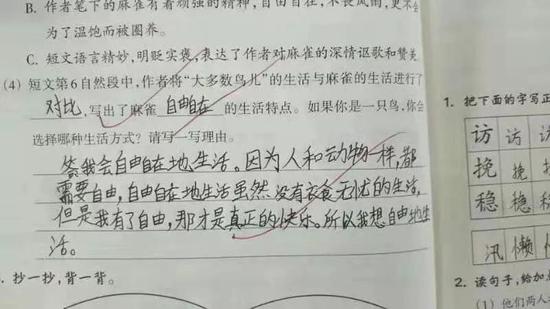 B. 作者笔下的麻雀有着顽强的精神，自由自在，不畏风雨，更不会
为了温饱而被圈养。
C. 短文语言精妙，明贬实褒，表达了作者对麻雀的深情讴歌和赞美
(4) 短文第6自然段中，作者将“大多数鸟儿”的生活与麻雀的生活进行了
对比，写出了麻雀 自由自在 的生活特点。如果你是一只鸟，你会
选择哪种生活方式？请写一写理由。
答我会自由自在地生活。因为人和动物一样，都
需要自由，自由自在地生活虽然没有衣食无忧的生活，
但是我有了自由，那才是真正的快乐。所以我想自由地生
活。
抄一抄，背一背。
1. 把下面的字写正
访 访 访
挽 挽 挽
稳 稳 稳
汛 懒
2. 读句子，给加点
(1) 他们两人